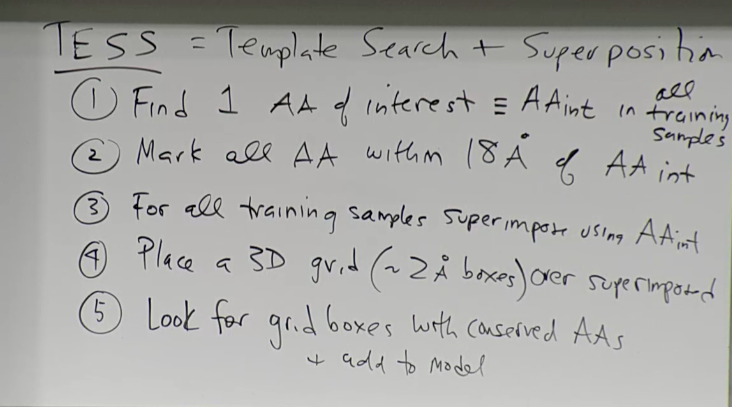 TESS = Template Search + Superposition
① Find 1 AA of interest ≡ AAint in all training samples
② Mark all AA within 18Å of AA int
③ For all training samples superimpose using AAint
④ Place a 3D grid (~2Å boxes) over superimposed
⑤ Look for grid boxes with conserved AAs
+ add to model